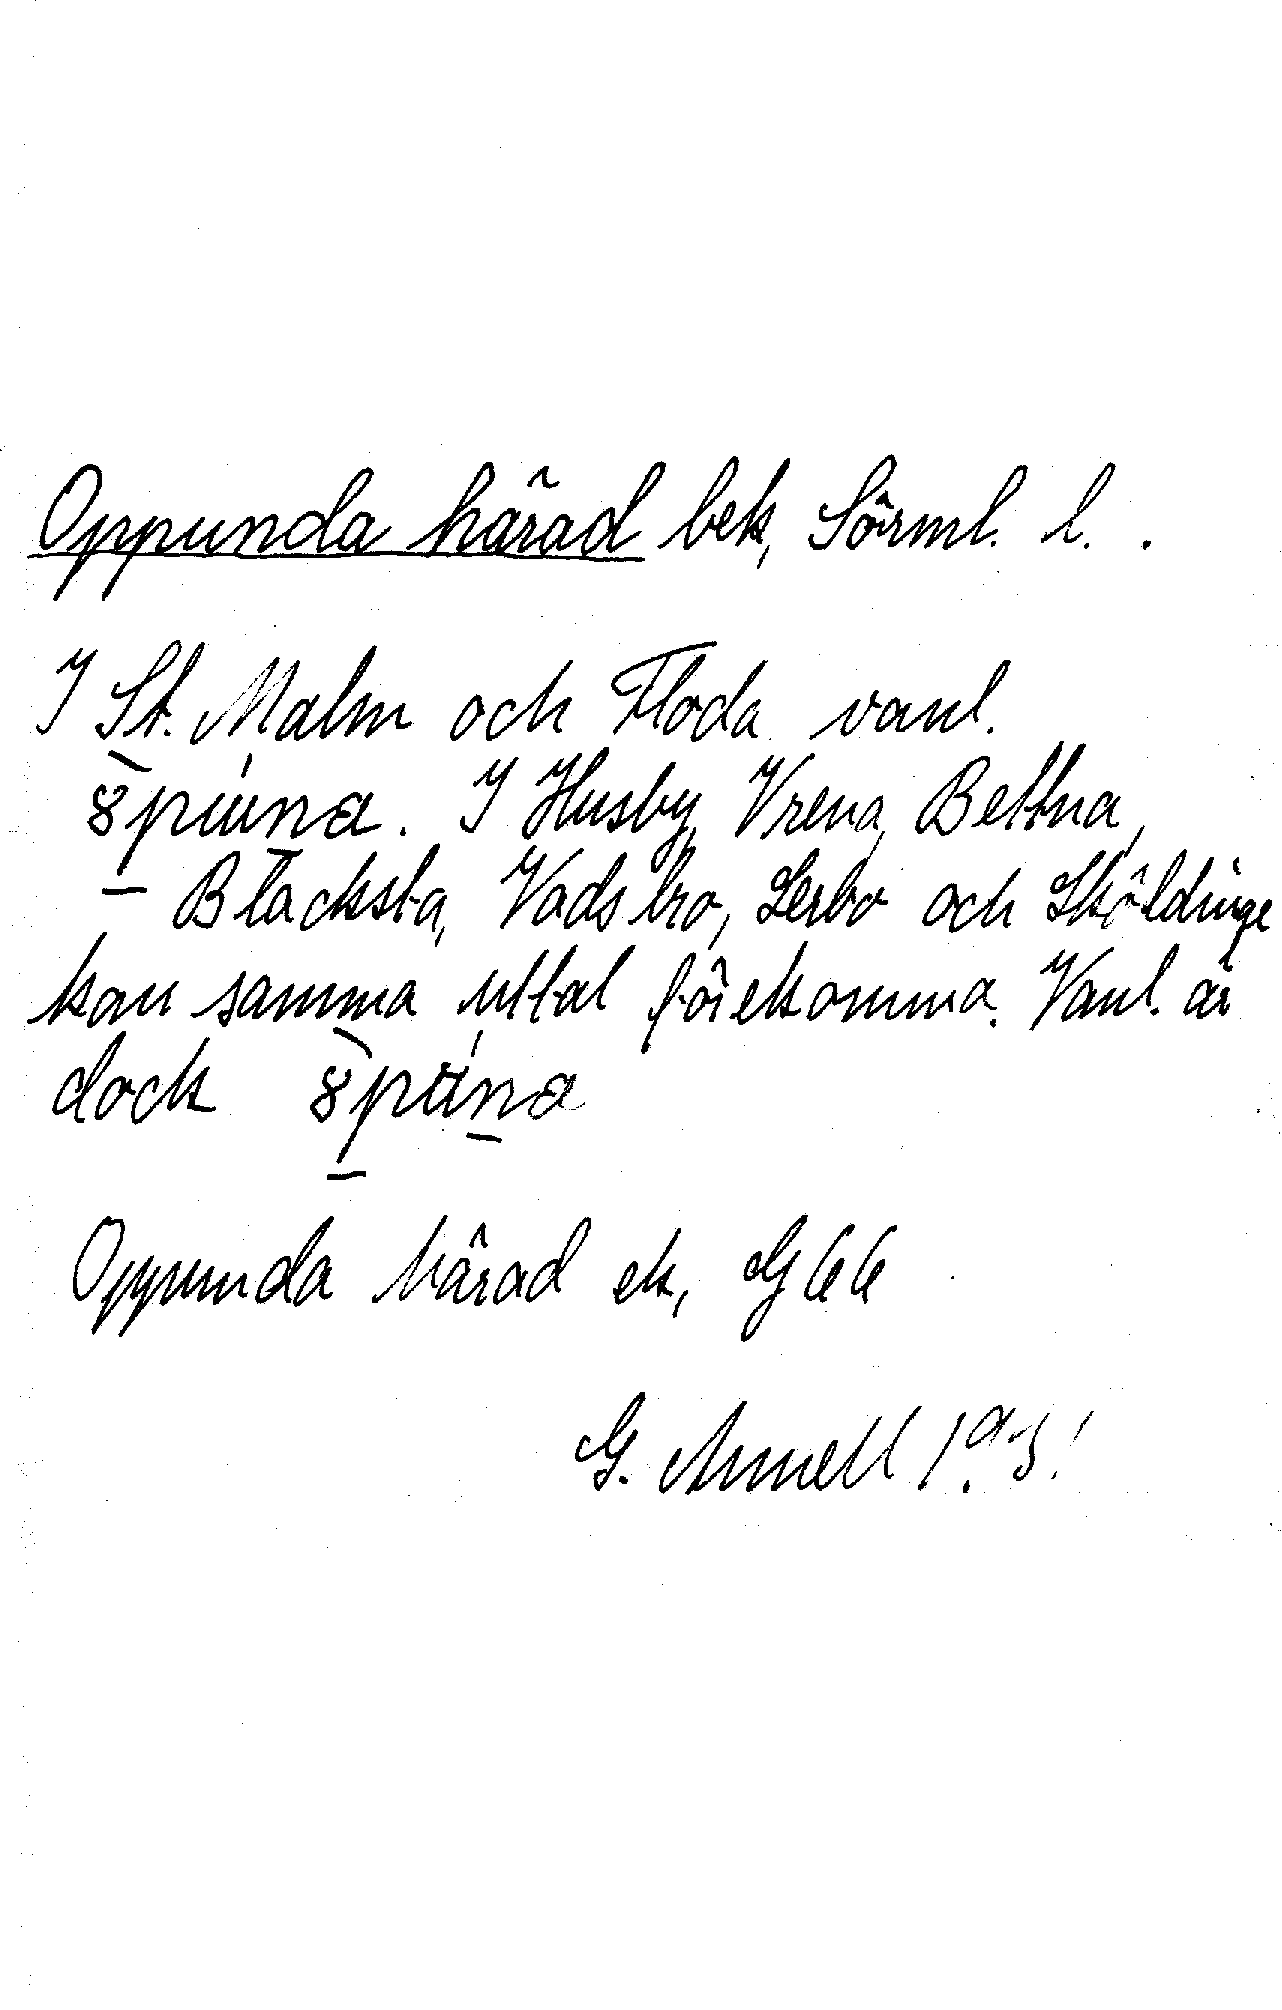 Oppunda härad bek, Sörml. l.
I St. Malm och Floda vanl.
I Husby, Vrena, Bettna,
Blacksta, Vadsbro, Lerbo och Sköldinge
kan samma uttal förekomma. Vanl. är
dock
Oppunda härad ek, G 66
G. Arnell 1931